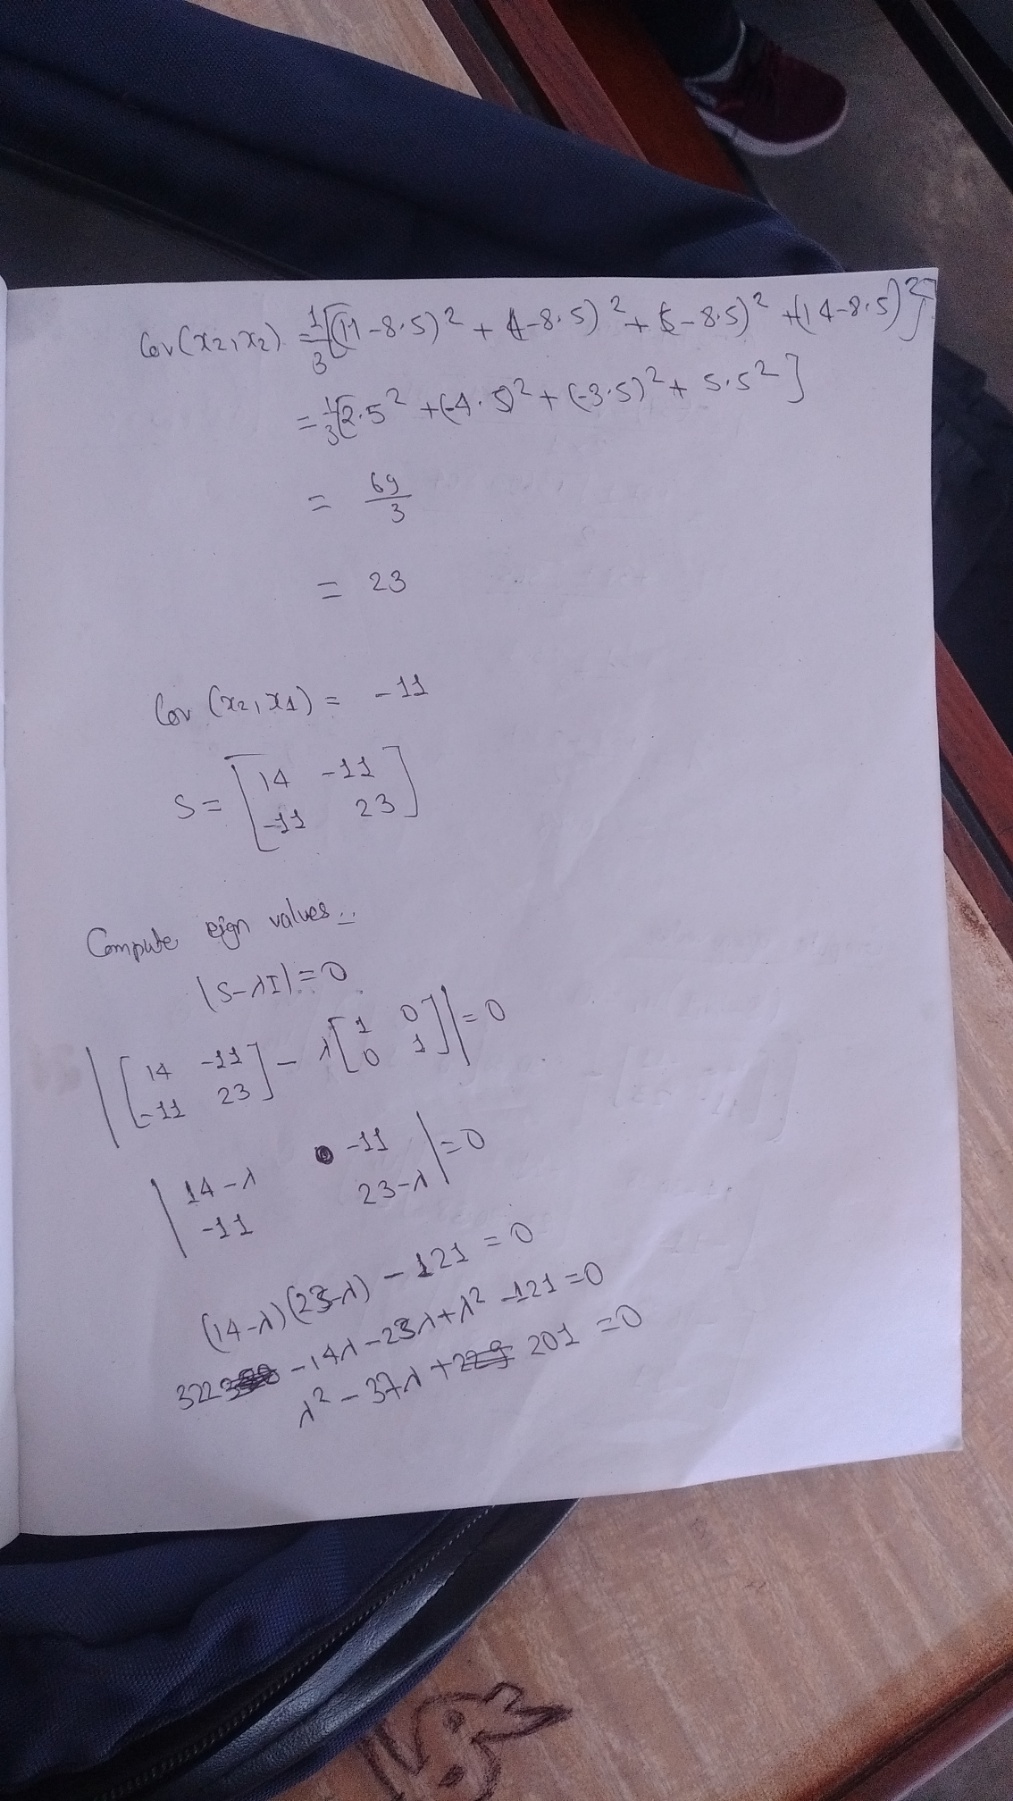 Cov(x2,x2) = 1/3[(11-8.5)² + (4-8.5)² + (5-8.5)² + (14-8.5)²]
= 1/3[2.5² + (-4.5)² + (-3.5)² + 5.5²]
= 69/3
= 23
Cov (x2,x1) = -11
S = [14 -11
-11 23]
Compute eign values..
|S-λI|=0
|[14 -11
-11 23] - λ[1 0
0 1]|=0
|14-λ -11
-11 23-λ|=0
(14-λ)(23-λ) - 121 = 0
322 -14λ-23λ+λ² -121=0
λ² - 37λ + 201 =0